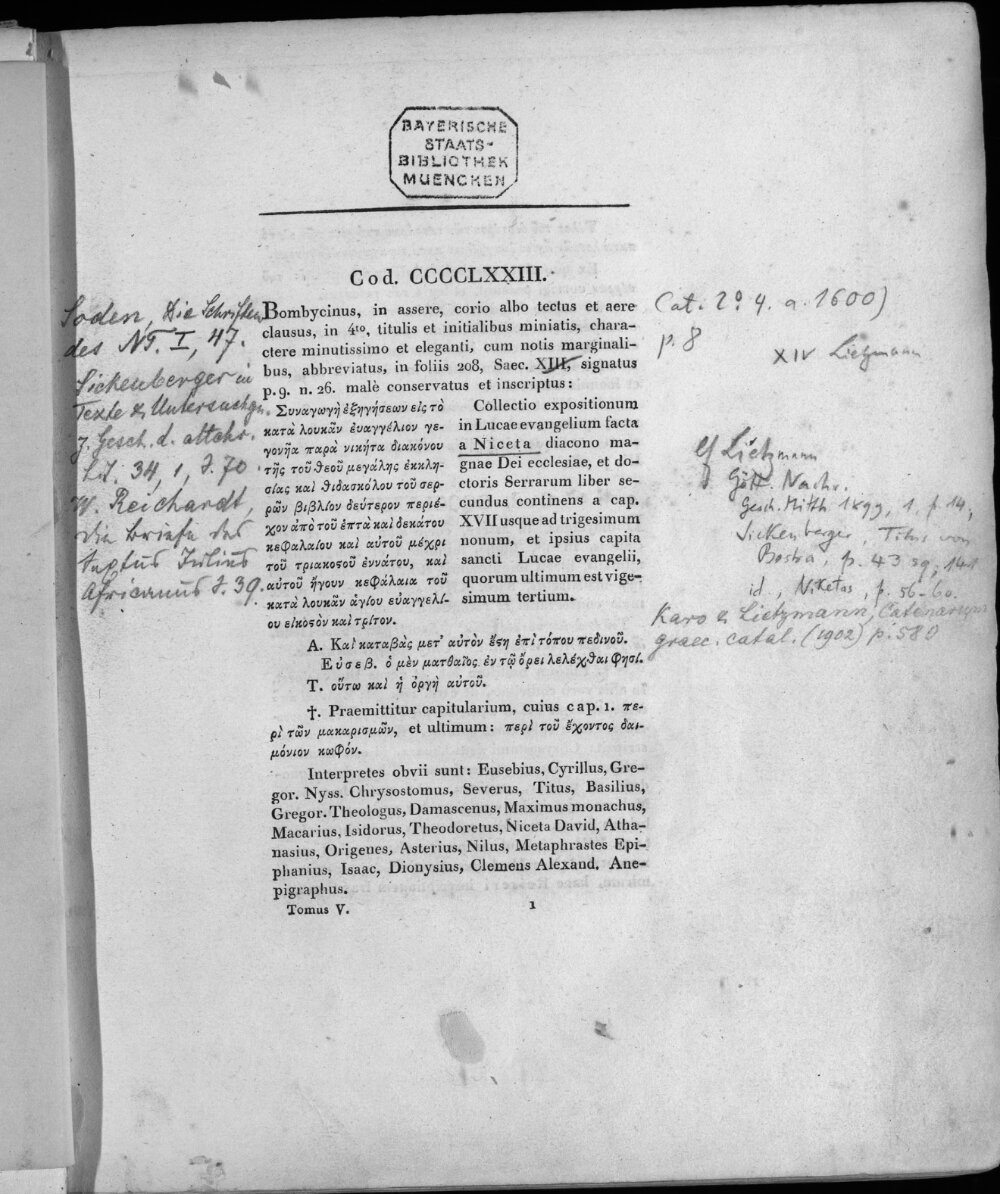 BAYERISCHE
STAATS-
BIBLIOTHEK
MUENCHEN
Cod. CCCCLXXIII.
Bombycinus, in assere, corio albo tectus et aere
clausus, in 4to, titulis et initialibus miniatis, chara-
ctere minutissimo et eleganti, cum notis marginali-
bus, abbreviatus, in foliis 208, Saec. XIII, signatus
p. 9. n. 26. malè conservatus et inscriptus:
Συναγωγὴ ἐξηγήσεων εἰς τὸ
κατὰ λουκᾶν ἐυαγγέλιον γε-
γονῆα παρὰ νικήτα διακόνου
τῆς τοῦ θεοῦ μεγάλης ἐκκλη-
σίας καὶ διδασκόλου τοῦ σερ-
ρῶν βιβλίον δεύτερον περιέ-
χον ἀπὸ τοῦ ἑπτὰ καὶ δεκάτου
κεφαλαίου καὶ αὐτοῦ μέχρι
τοῦ τριακοστοῦ ἐννάτου, καὶ
αὐτοῦ ἤγουν κεφάλαια τοῦ
κατὰ λουκᾶν ἁγίου ευαγγελί-
ου εἰκοστὸν καὶ τρίτον.
Collectio expositionum
in Lucae evangelium facta
a Niceta diacono ma-
gnae Dei ecclesiae, et do-
ctoris Serrarum liber se-
cundus continens a cap.
XVII usque ad trigesimum
nonum, et ipsius capita
sancti Lucae evangelii,
quorum ultimum est vige-
simum tertium.
Α. Καὶ καταβὰς μετ' αὐτὸν ἔστη ἐπὶ τόπου πεδινοῦ.
Εὐσεβ. ὁ μὲν ματθαῖος ἐν τῷ ὄρει λελέχθαι φησί.
Τ. οὕτω καὶ ἡ ὀργὴ αὐτοῦ.
†. Praemittitur capitularium, cuius cap. 1. πε-
ρὶ τῶν μακαρισμῶν, et ultimum: περὶ τοῦ ἔχοντος δαι-
μόνιον κωφόν.
Interpretes obvii sunt: Eusebius, Cyrillus, Gre-
gor. Nyss. Chrysostomus, Severus, Titus, Basilius,
Gregor. Theologus, Damascenus, Maximus monachus,
Macarius, Isidorus, Theodoretus, Niceta David, Atha-
nasius, Origenes, Asterius, Nilus, Metaphrastes Epi-
phanius, Isaac, Dionysius, Clemens Alexand. Ane-
pigraphus.
Tomus V. 1
Soden, Die Schriften
des NT. I, 47.
Sickenberger in
Texte & Untersuchgn.
z. Gesch. d. altchr.
Lit. 34, 1, S. 70
W. Reichardt,
die Briefe des
Sextus Julius
Africanus S. 39.
Cat. 2o. 4. a. 1600)
p. 8
XIV Lietzmann
cf Lietzmann
Gött. Nachr.
Gesch. Mitth 1899, 1. p. 14,
Sickenberger Titus von
Bostra, p. 43 sq; 141
id., Niketas, p. 56-60.
Karo & Lietzmann, Catenarum
graec. catal. (1902) p. 580